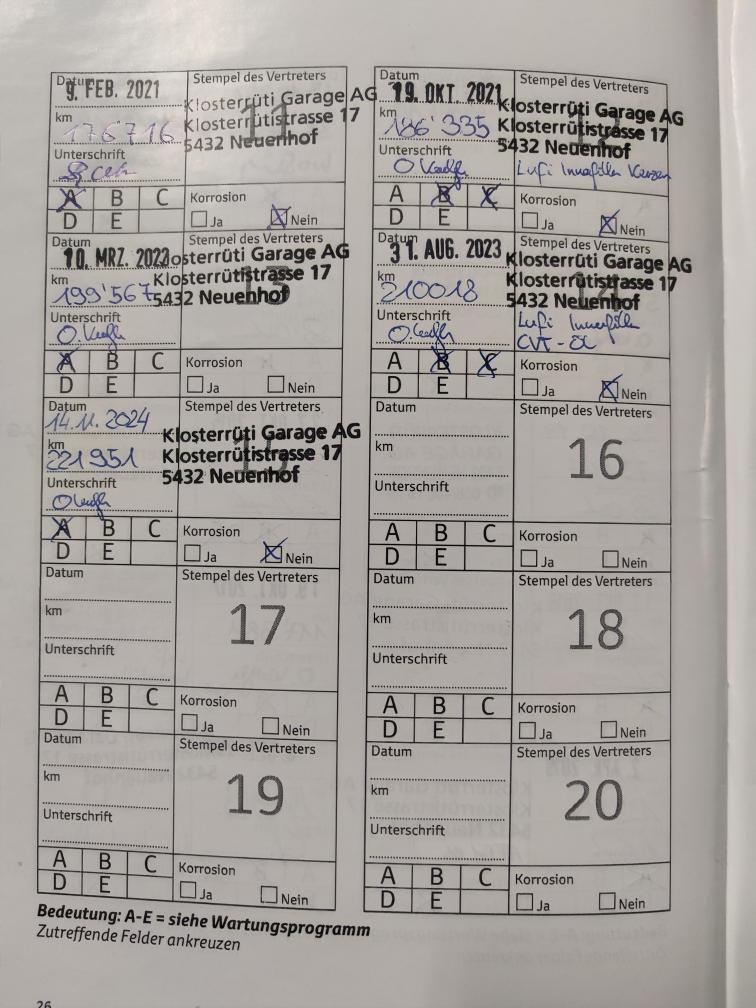 Datum
9. FEB. 2021
Stempel des Vertreters
Klosterrüti Garage AG
Klosterrütistrasse 17
5432 Neuenhof
11
km
176716
Unterschrift
A B C
D E
Korrosion
Ja Nein
Datum
19. OKT. 2021
Stempel des Vertreters
Klosterrüti Garage AG
Klosterrütistrasse 17
5432 Neuenhof
km
186'335
Unterschrift
Lufi Innenfilter Kerzen
A B C
D E
Korrosion
Ja Nein
Datum
10. MRZ. 2023
Stempel des Vertreters
osterrüti Garage AG
Klosterrütistrasse 17
5432 Neuenhof
13
km
199'567
Unterschrift
A B C
D E
Korrosion
Ja Nein
Datum
31. AUG. 2023
Stempel des Vertreters
Klosterrüti Garage AG
Klosterrütistrasse 17
5432 Neuenhof
14
km
210018
Unterschrift
Lufi Innenfilter
CVT-ÖL
A B C
D E
Korrosion
Ja Nein
Datum
14.11.2024
Stempel des Vertreters
Klosterrüti Garage AG
Klosterrütistrasse 17
5432 Neuenhof
15
km
221951
Unterschrift
A B C
D E
Korrosion
Ja Nein
Datum
Stempel des Vertreters
16
km
Unterschrift
A B C
D E
Korrosion
Ja Nein
Datum
Stempel des Vertreters
17
km
Unterschrift
A B C
D E
Korrosion
Ja Nein
Datum
Stempel des Vertreters
18
km
Unterschrift
A B C
D E
Korrosion
Ja Nein
Datum
Stempel des Vertreters
19
km
Unterschrift
A B C
D E
Korrosion
Ja Nein
Datum
Stempel des Vertreters
20
km
Unterschrift
A B C
D E
Korrosion
Ja Nein
Bedeutung: A-E = siehe Wartungsprogramm
Zutreffende Felder ankreuzen
26